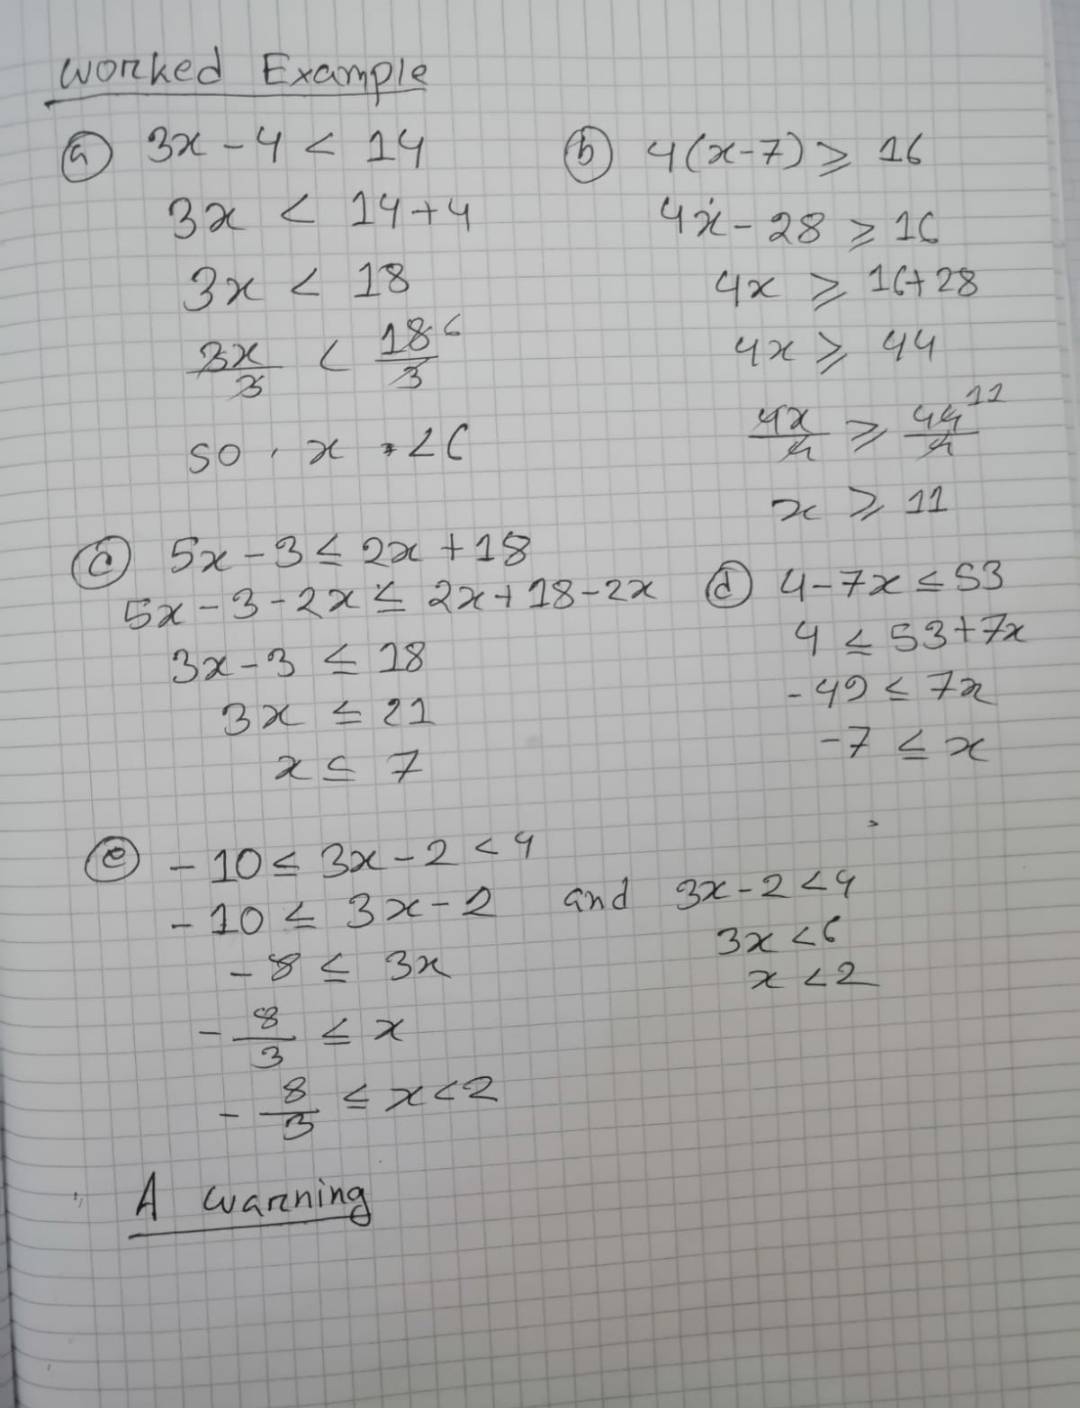 Worked Example
(a) 3x - 4 < 14
3x < 14 + 4
3x < 18
3x/3 < 18/3 6
so, x < 6
(b) 4(x-7) ⩾ 16
4x - 28 ⩾ 16
4x ⩾ 16 + 28
4x ⩾ 44
4x/4 ⩾ 44/4 11
x ⩾ 11
(c) 5x - 3 ≤ 2x + 18
5x - 3 - 2x ≤ 2x + 18 - 2x
3x - 3 ≤ 18
3x ≤ 21
x ≤ 7
(d) 4 - 7x ≤ 53
4 ≤ 53 + 7x
-49 ≤ 7x
-7 ≤ x
(e) -10 ≤ 3x - 2 < 4
-10 ≤ 3x - 2 and 3x - 2 < 4
-8 ≤ 3x
-8/3 ≤ x
3x < 6
x < 2
-8/3 ≤ x < 2
A warning